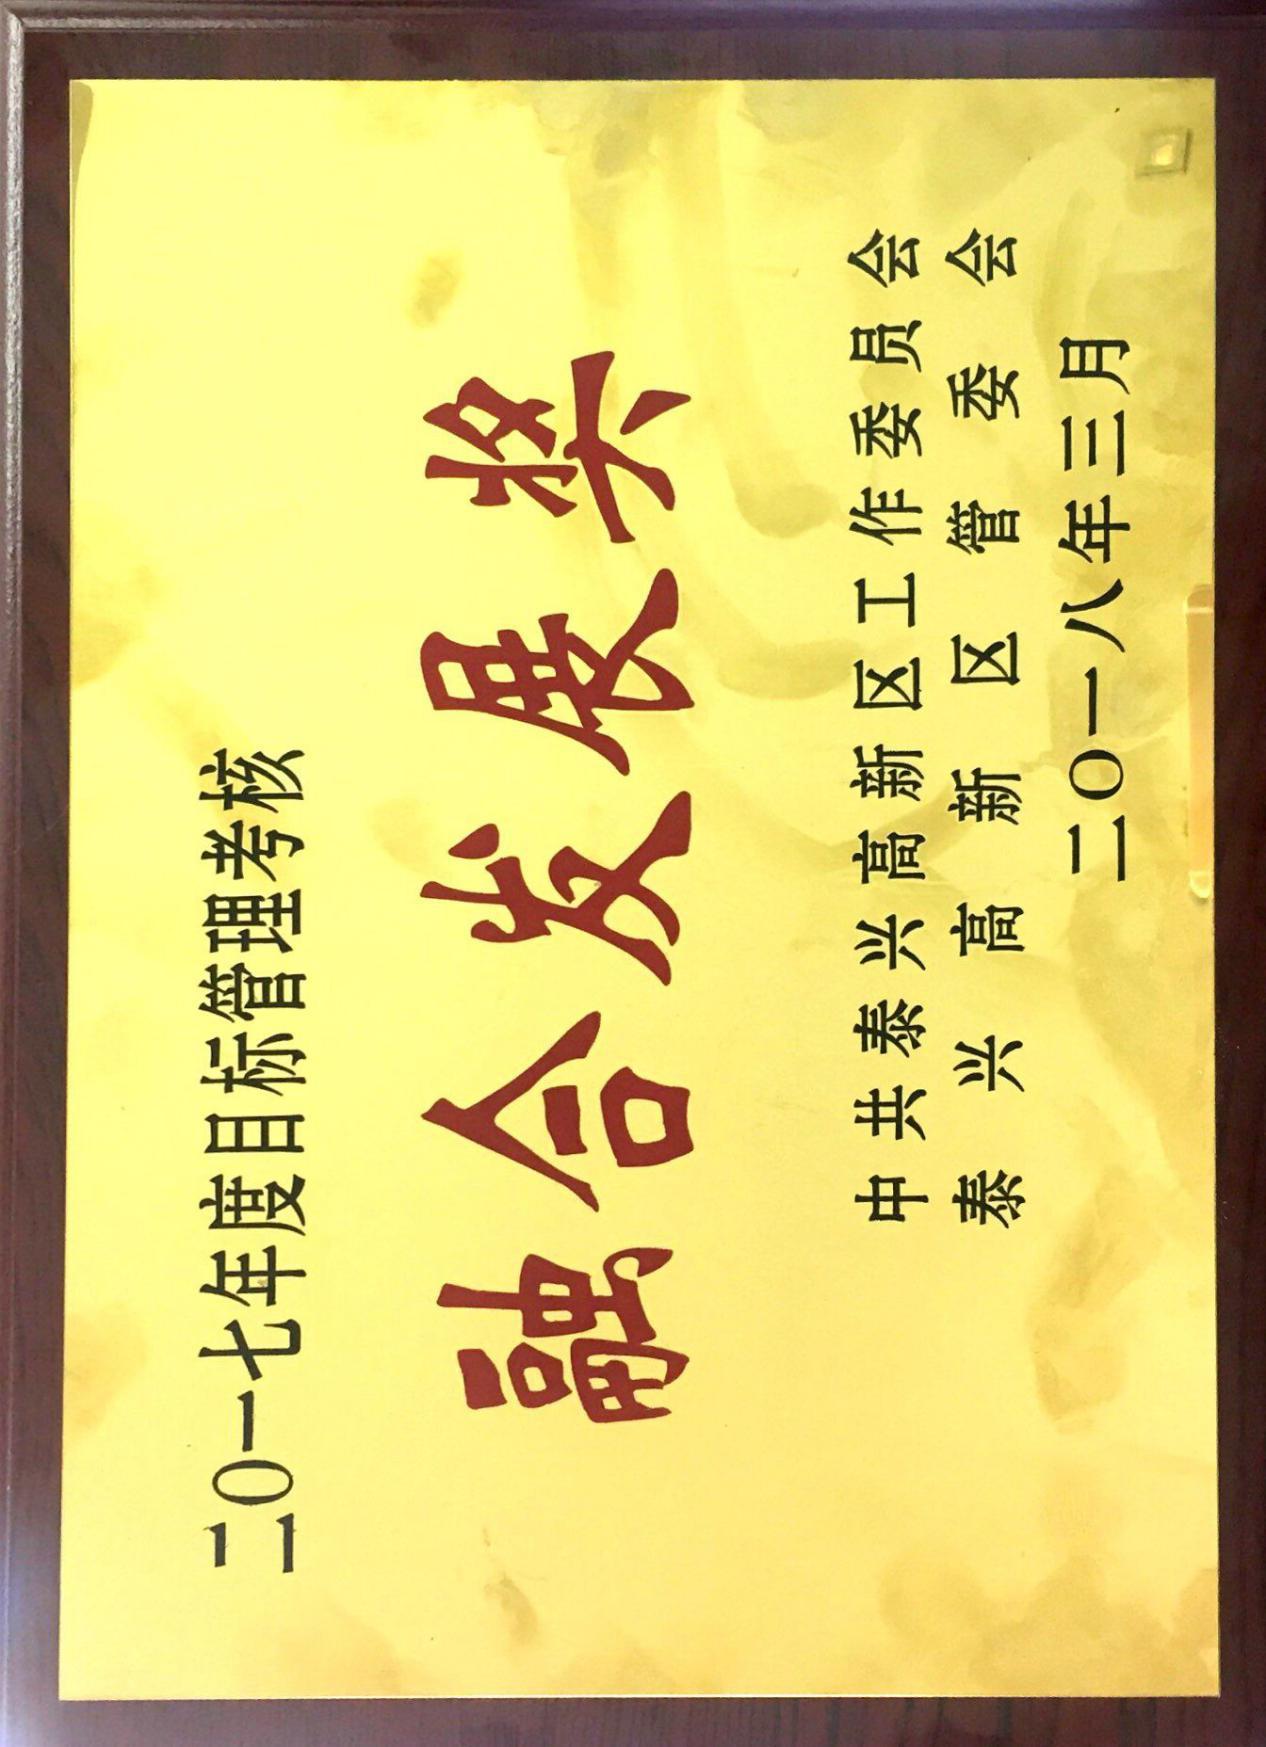 二〇一七年度目标管理考核
融合发展奖
中共泰兴高新区工作委员会
泰兴高新区管委会
二〇一八年三月